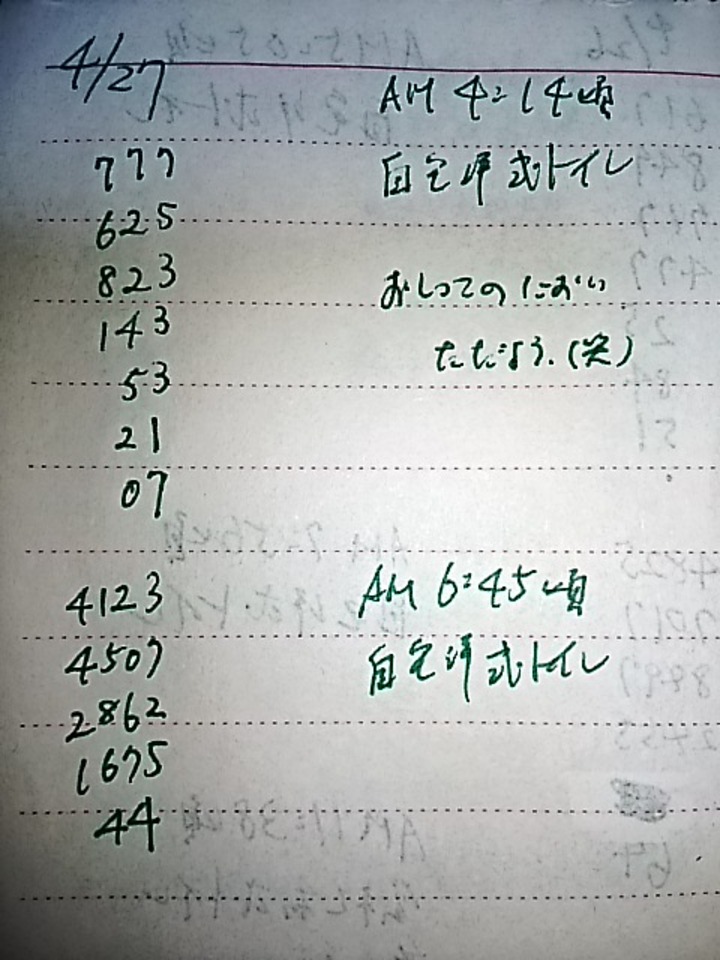 4/27
AM 4:14頃
777
自宅洋式トイレ
625
823
おしっこのにおい
143
ただよう.(笑)
53
21
07
4123
AM 6:45頃
4507
自宅洋式トイレ
2862
1675
44